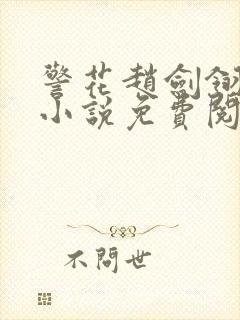 警花趙劍釵
小說免費閱
不問世